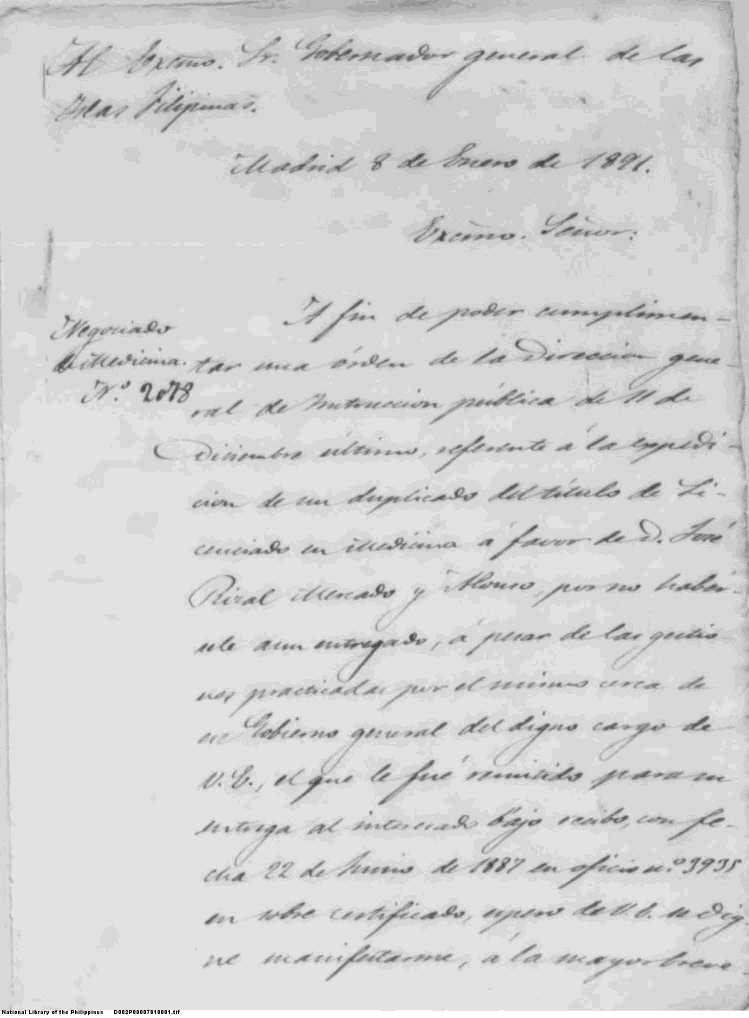 Al Excmo. Sr. Gobernador general de las
Islas Filipinas.
Madrid 8 de Enero de 1891.
Excmo. Señor:
Negociado
de Medicina.
N.º 2078
A fin de poder cumplimen-
tar una órden de la Direccion gene-
ral de Instruccion pública de 11 de
Diciembre último, referente á la expedi-
cion de un duplicado del título de Li-
cenciado en Medicina á favor de D. José
Rizal Mercado y Alonso, por no habér-
sele aun entregado, á pesar de las gestio-
nes practicadas por el mismo cerca de
ese Gobierno general del digno cargo de
V. E., el que le fué remitido para su
entrega al interesado bajo recibo, con fe-
cha 22 de Junio de 1887 en oficio n.º 3935
en sobre certificado, espero de V. E. se dig-
ne manifestarme, á la mayor breve-
National Library of the Philippines D002P00007010001.tif